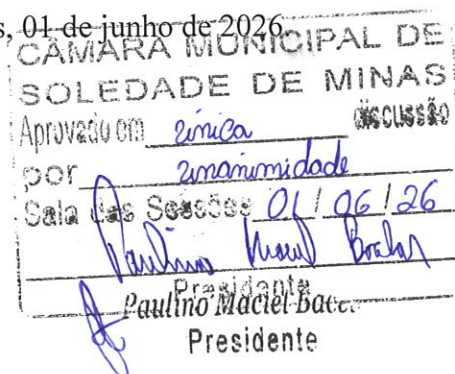 s, 01 de junho de 2026.
CÂMARA MUNICIPAL DE
SOLEDADE DE MINAS
Aprovado em única discussão
por unanimidade
Sala das Sessões 01/06/26
Presidente
Paulino Maciel
Presidente